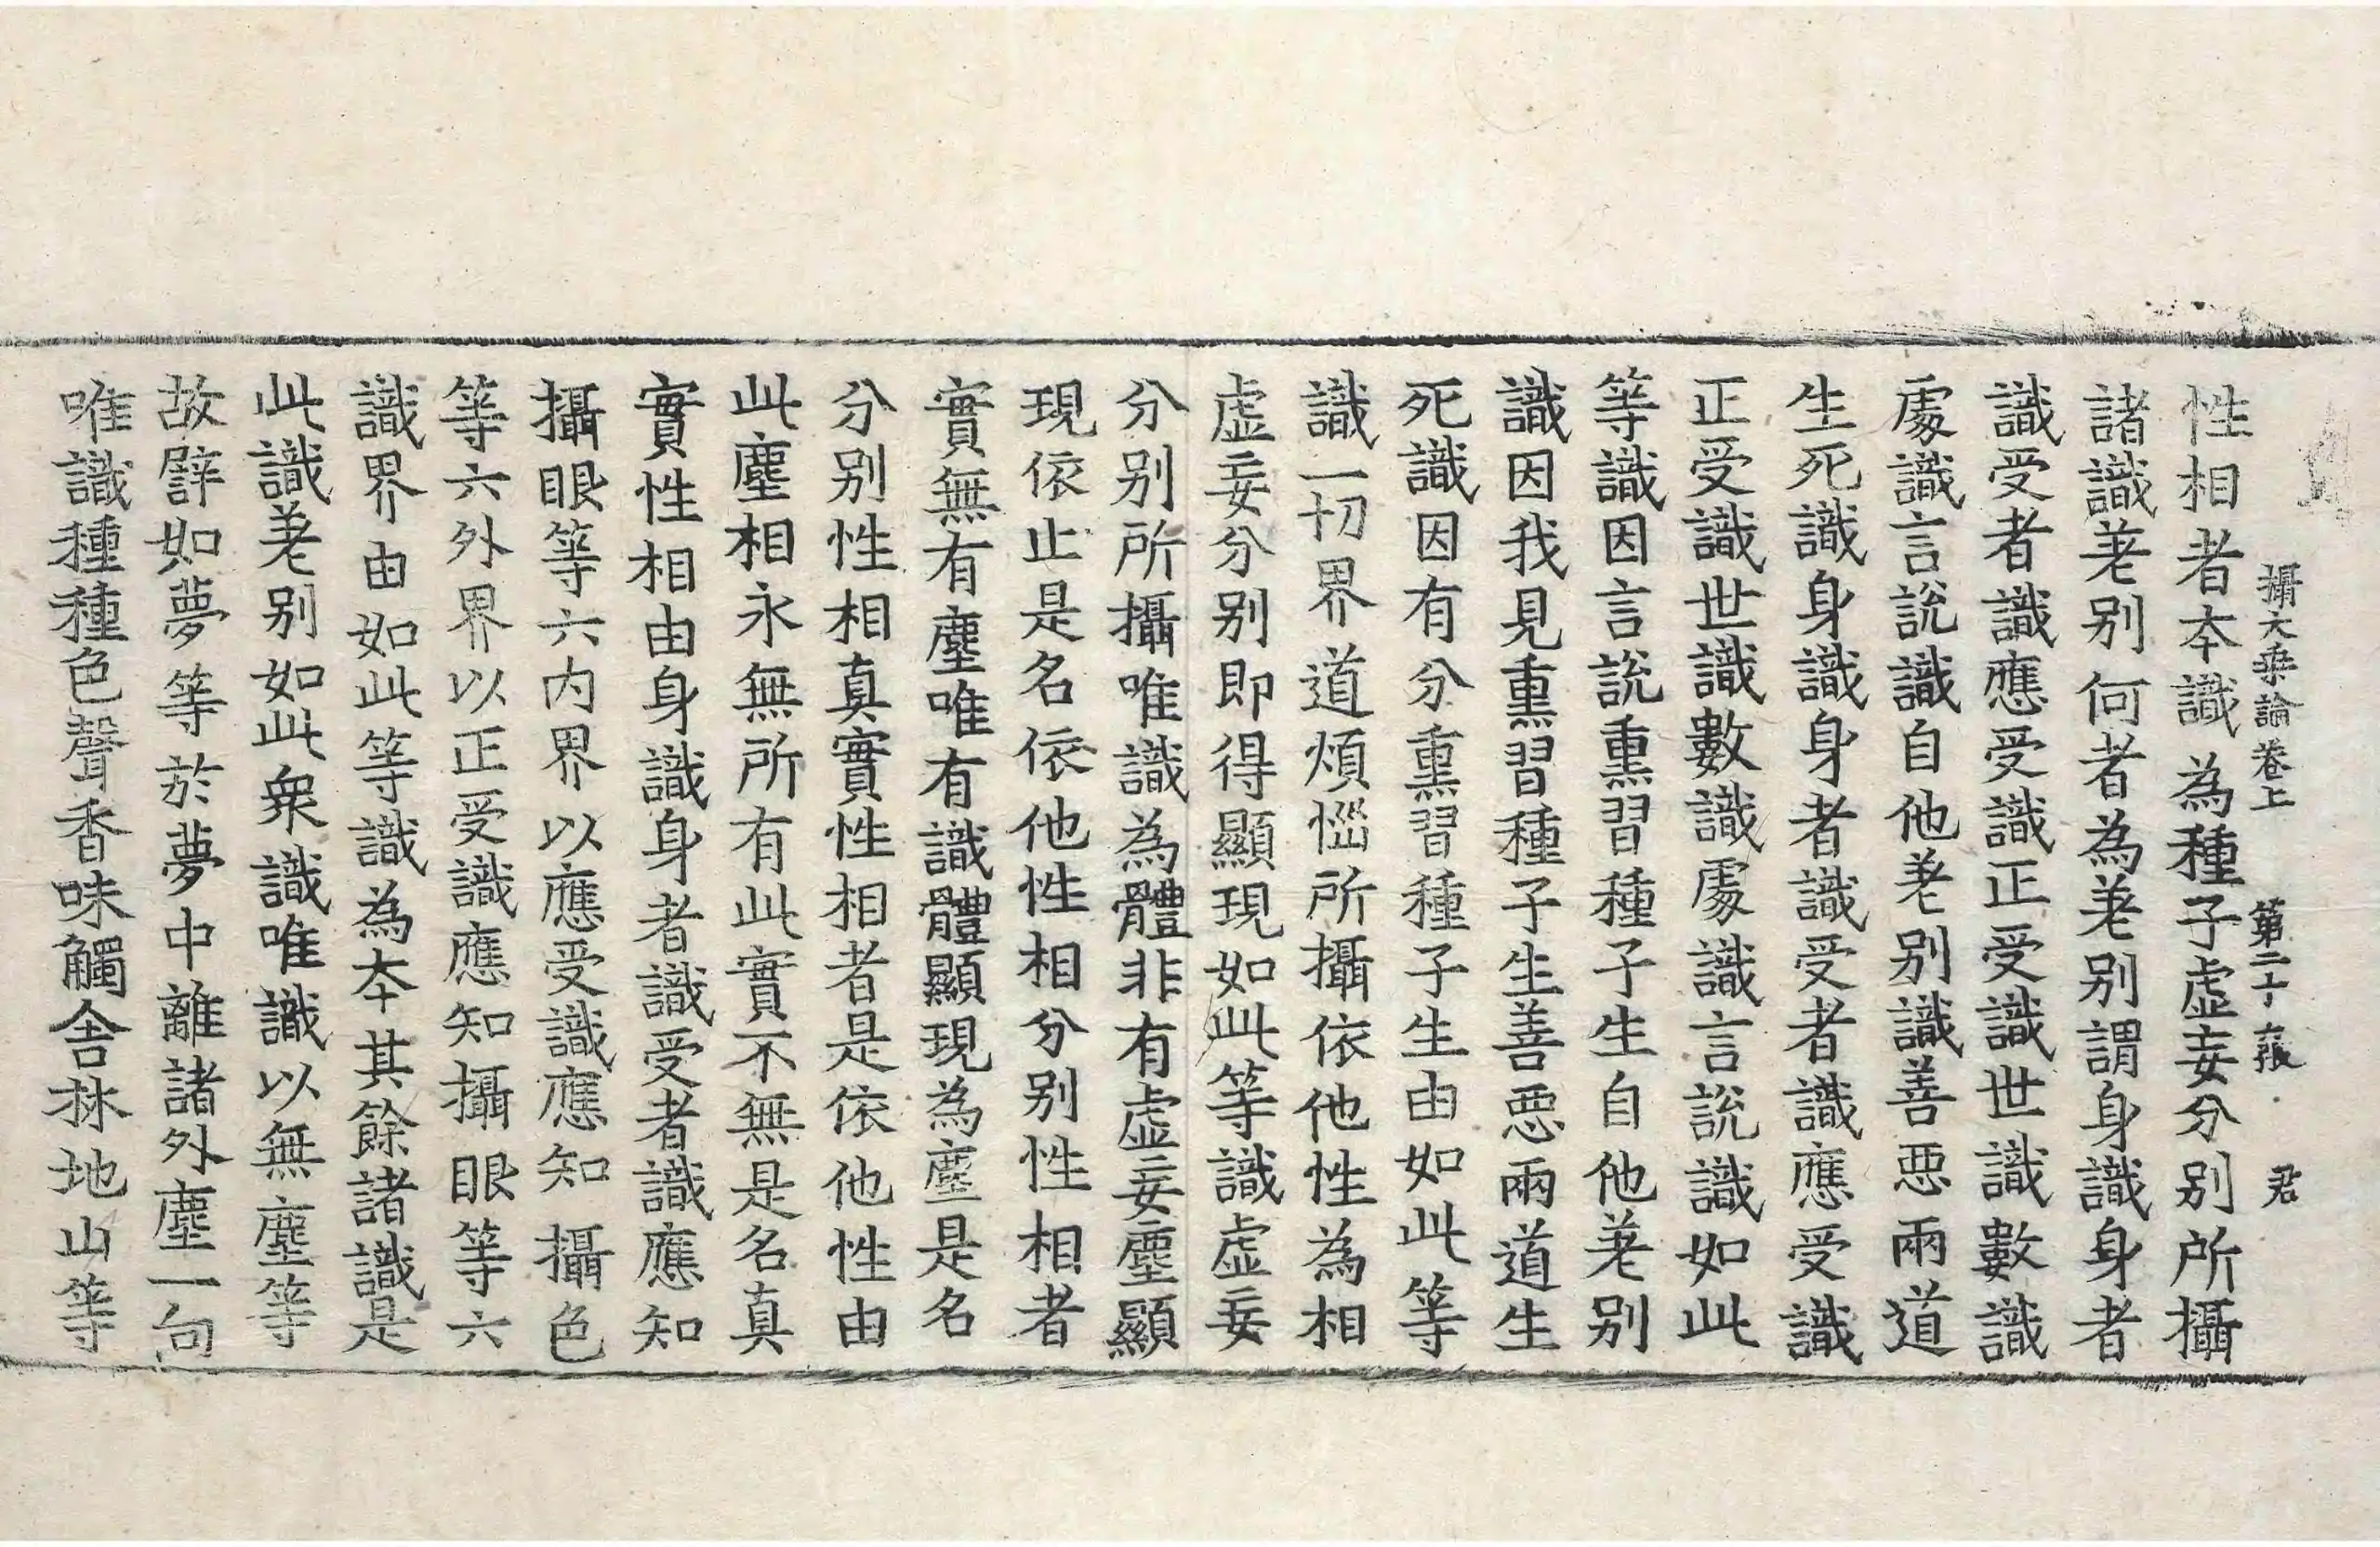 攝大乘論卷上 第二十張 君
性相者本識為種子虛妄分別所攝
諸識差別何者為差別謂身識身者
識受者識應受識正受識世識數識
處識言說識自他差別識善惡兩道
生死識身識身者識受者識應受識
正受識世識數識處識言說識如此
等識因言說熏習種子生自他差別
識因我見熏習種子生善惡兩道生
死識因有分熏習種子生由如此等
識一切界道煩惱所攝依他性為相
虛妄分別即得顯現如此等識虛妄
分別所攝唯識為體非有虛妄塵顯
現依止是名依他性相分別性相者
實無有塵唯有識體顯現為塵是名
分別性相真實性相者是依他性由
此塵相永無所有此實不無是名真
實性相由身識身者識受者識應知
攝眼等六內界以應受識應知攝色
等六外界以正受識應知攝眼等六
識界由如此等識為本其餘諸識是
此識差別如此眾識唯識以無塵等
故譬如夢等於夢中離諸外塵一向
唯識種種色聲香味觸舍林地山等